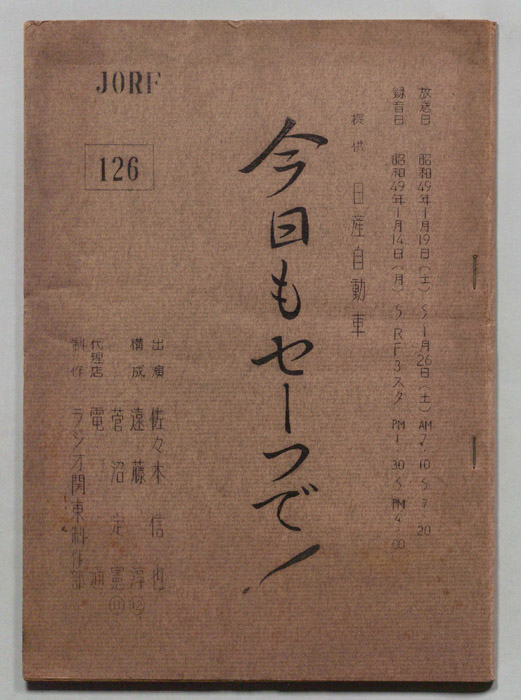 JORF
126
放送日 昭和49年1月19日(土)〜1月26日(土) AM 7.10〜7.20
録音日 昭和49年1月14日(月)〜 RF3スタ PM1.30〜PM4.00
提供 日産自動車
今日もセーフで!
出演 佐々木信也
構成 遠藤淳②
菅沼定憲⑪
代理店 電通
制作 ラジオ関東制作部